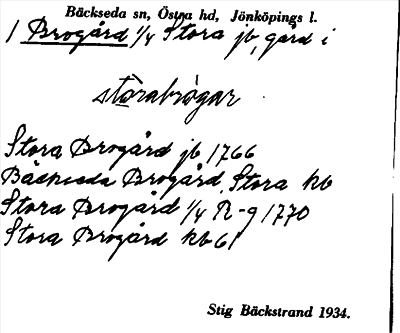 Bäckseda sn, Östra hd, Jönköpings l.
1 Brogård 1/4 Stora jb, gård i
stōrabrógar
Stora Brogård jb 1766
Bäckseda Brogård, Stora kb
Stora Brogård 1/4 R-g 1770
Stora Brogård kb 61
Stig Bäckstrand 1934.